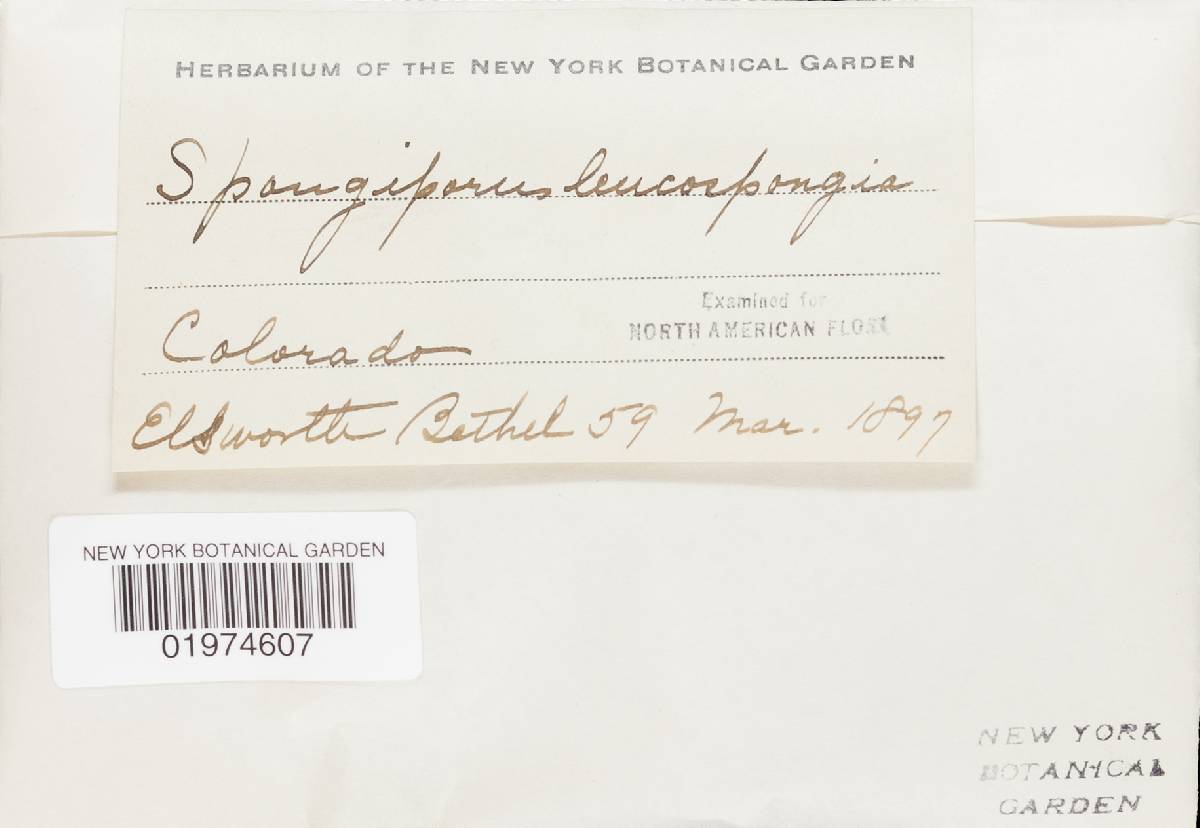 HERBARIUM OF THE NEW YORK BOTANICAL GARDEN
Spongiporus leucospongia
Examined for
NORTH AMERICAN FLORA
Colorado
Ellsworth Bethel 59 Mar. 1897
NEW YORK BOTANICAL GARDEN
01974607
NEW YORK
BOTANICAL
GARDEN